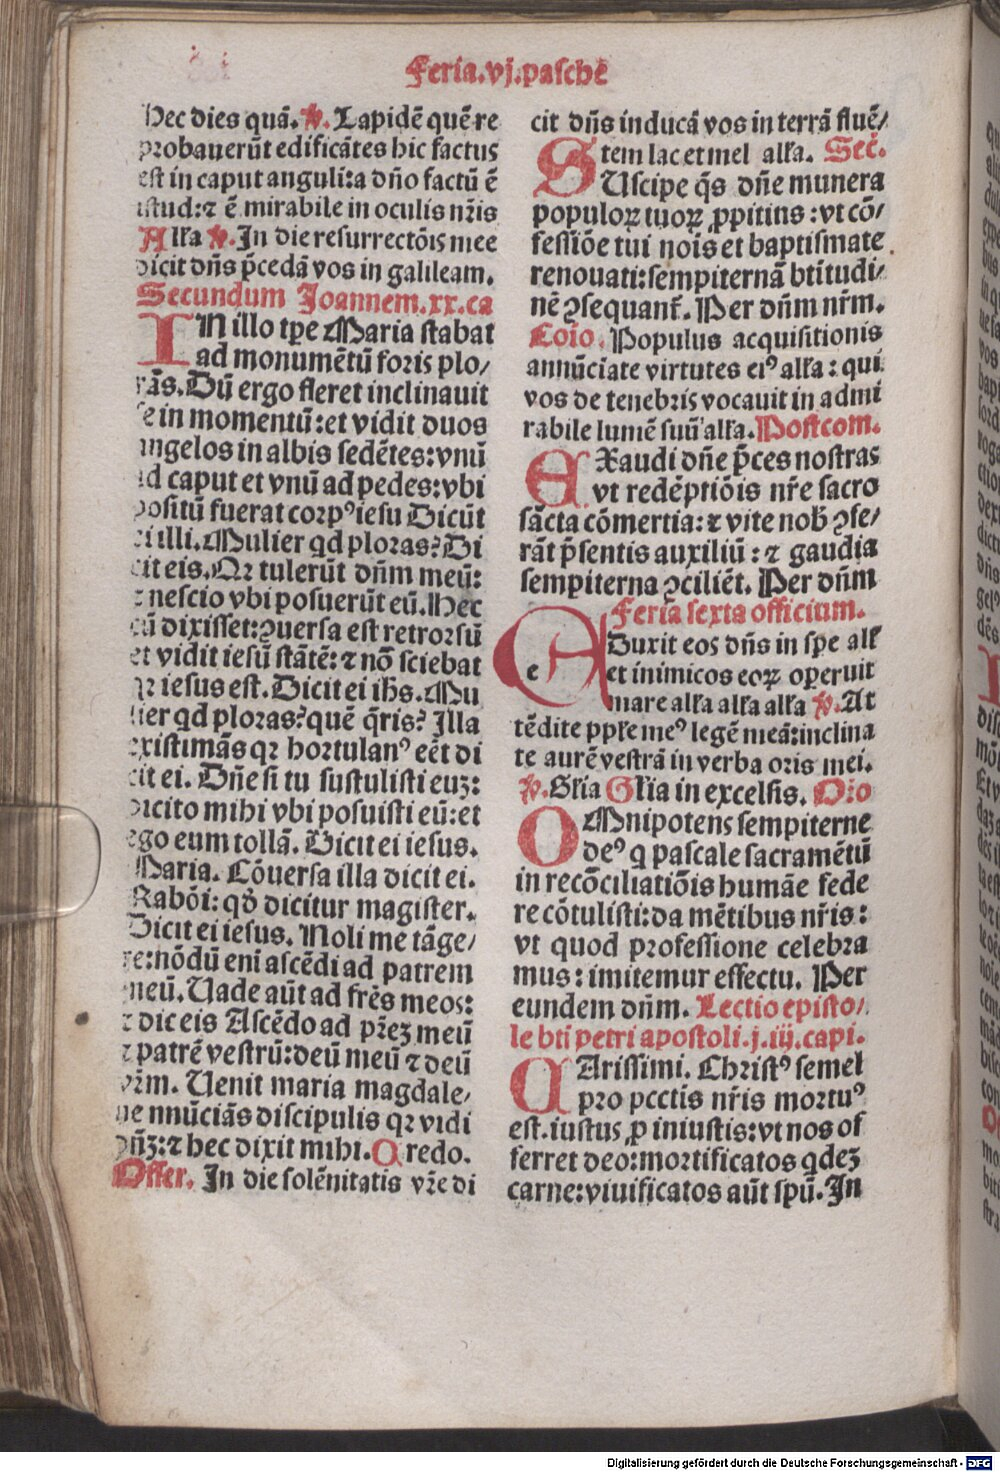 Feria.vj.paschē
hec dies quā. ℣. Lapidē quē re
probauerūt edificātes hic factus
est in caput anguli:a dño factū ē
istud:⁊ ē mirabile in oculis nr̄is
Alľa ℣. In die resurrectōis mee
dicit dñs p̄cedā vos in galileam.
Secundum Joannem.xx.ca
IN illo tꝑe Maria stabat
ad monumētū foris plo/
rās. Dū ergo fleret inclinauit
se in momentū:et vidit duos
angelos in albis sedētes:vnū
ad caput et vnū ad pedes:vbi
positū fuerat corpꝰ iesu Dicūt
ei illi. Mulier qd ploras? Di
cit eis. Qꝛ tulerūt dñm meū:
⁊ nescio vbi posuerūt eū. Hec
cū dixisset:ꝯuersa est retrorsū
et vidit iesū stātē: ⁊ nō sciebat
qꝛ iesus est. Dicit ei ihs̄. Mu
lier qd ploras? quē q̄ris? Illa
existimās qꝛ hortulanꝰ eēt di
cit ei. Dñe si tu sustulisti euʒ:
dicito mihi vbi posuisti eū:et
ego eum tollā. Dicit ei iesus.
Maria. Cōuersa illa dicit ei.
Rabōi: qđ dicitur magister.
Dicit ei iesus. Noli me tāge/
re:nōdū eni ascēdi ad patrem
meū. Uade aūt ad frēs meos:
⁊ dic eis Ascēdo ad pr̄eʒ meū
⁊ patrē vestrū:deū meū ⁊ deū
vr̄m. Uenit maria magdale/
ne nnūciās discipulis qꝛ vidi
dñʒ:⁊ hec dixit mihi. Credo.
Offer. In die solēnitatis vr̄e di
cit dñs inducā vos in terrā fluē/
tem lac et mel alľa. Sec̄.
SUscipe q̄s dñe munera
populoꝝ tuoꝝ ꝓpitius:vt cō/
fessiōe tui nois̄ et baptismate
renouati:sempiternā btītudi/
nē ꝯsequant̄. Per dñm nr̄m.
Coīo. Populus acquisitionis
annūciate virtutes eiꝰ alľa: qui
vos de tenebris vocauit in admi
rabile lumē suū alľa. Postcom.
EXaudi dñe p̄ces nostras
vt redēptiōis nr̄e sacro
sācta cōmertia: ⁊ vite nob̄ ꝯse/
rāt p̄sentis auxiliū: ⁊ gaudia
sempiterna ꝯciliēt. Per dñm
Feria sexta officium.
e
EDuxit eos dñs in spe alľ
et inimicos eoꝝ operuit
mare alľa alľa alľa ℣. At
tēdite pple meꝰ legē meā:inclina
te aurē vestrā in verba oris mei.
℣. Glia Glia in excelsis. Oro
OMnipotens sempiterne
deꝰ q pascale sacramētū
in recōciliatiōis humāe fede
re cōtulisti:da mētibus nr̄is:
vt quod professione celebra
mus: imitemur effectu. Per
eundem dñm. Lectio episto/
le btī petri apostoli.j.iij.capi.
CArissimi. Christꝰ semel
pro pcctis nr̄is mortuꝰ
est.iustus ꝓ iniustis:vt nos of
ferret deo:mortificatos qdeʒ
carne:viuificatos aūt spū. In
Digitalisierung gefördert durch die Deutsche Forschungsgemeinschaft - DFG